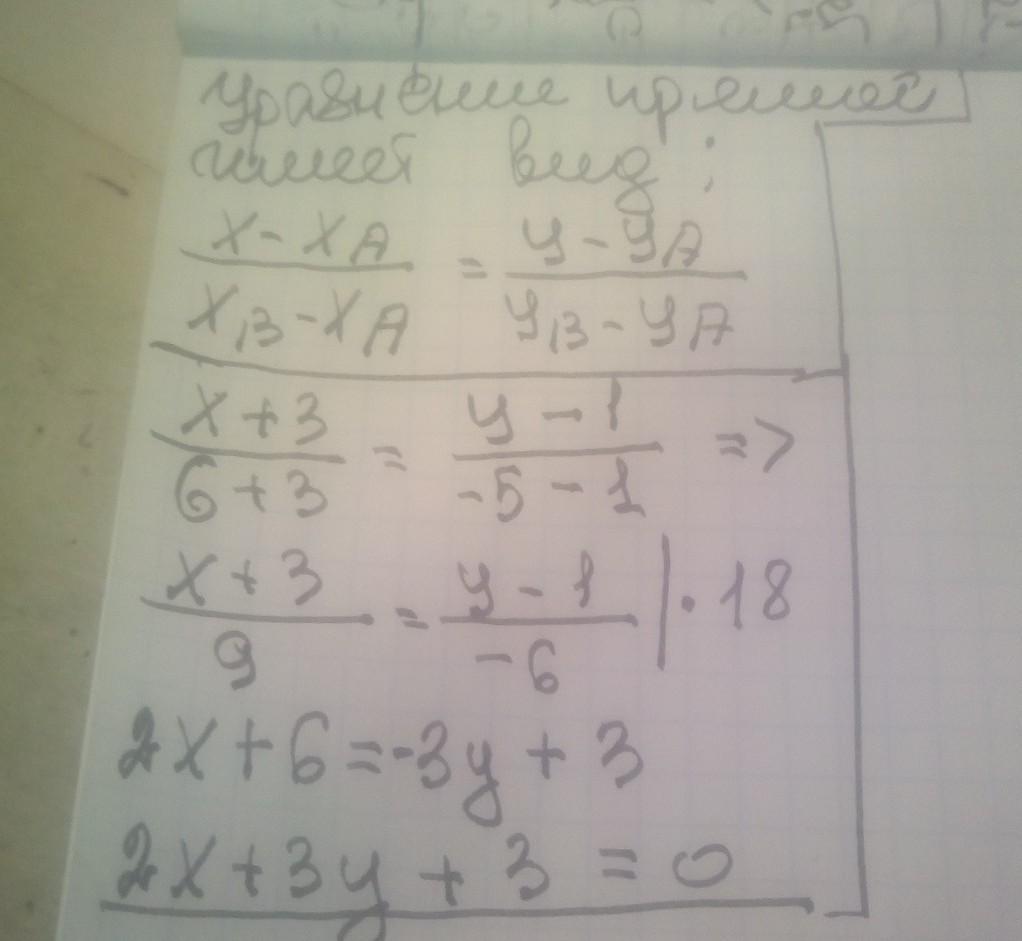 Уравнение прямой
имеет вид:
x - xA / xB - xA = y - yA / yB - yA
x + 3 / 6 + 3 = y - 1 / -5 - 1 =>
x + 3 / 9 = y - 1 / -6 | · 18
2x + 6 = -3y + 3
2x + 3y + 3 = 0